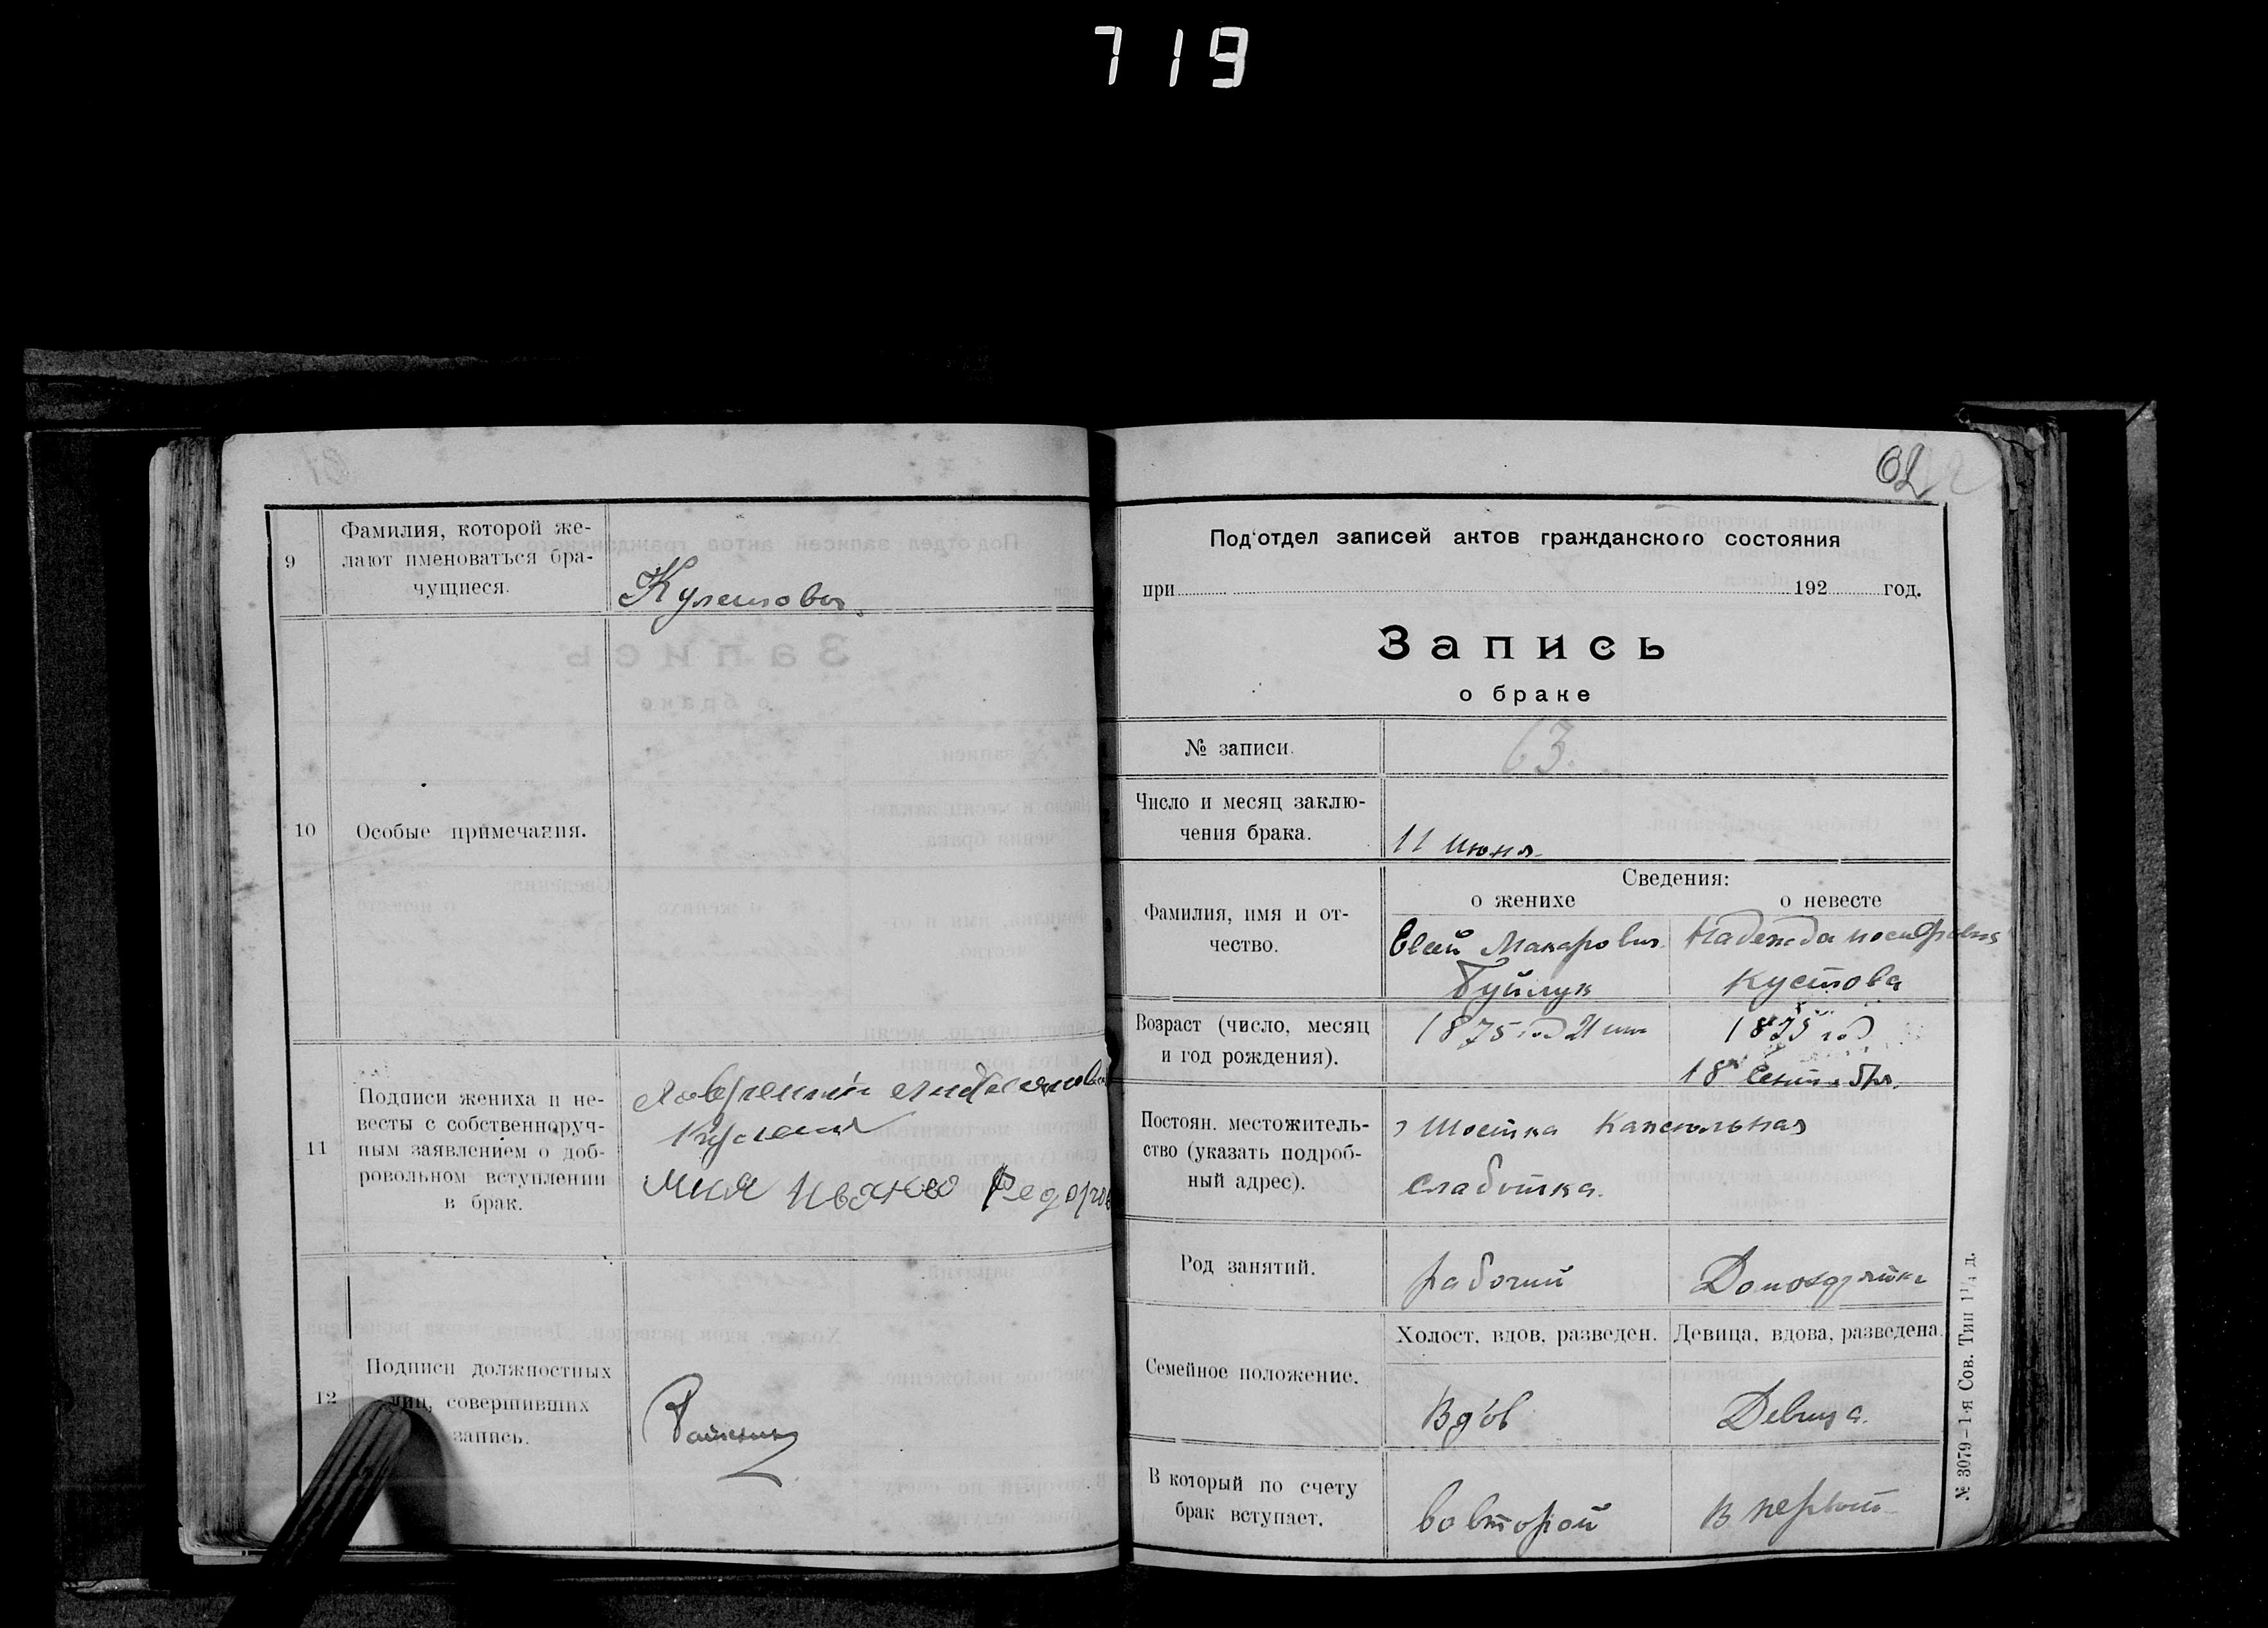 719
9
Фамилия, которой же-
лают именоваться бра-
чущиеся.
10
Особые примечания.
11
Подписи жениха и не-
весты с собственноруч-
ным заявлением о доб-
ровольном вступлении
в брак.
12
Подписи должностных
лиц, совершивших
запись.
62
Под'отдел записей актов гражданского состояния
при 192 год.
Запись
о браке
№ записи. 63.
Число и месяц заклю-
чения брака.
11 июня
Сведения:
о женихе о невесте
Фамилия, имя и от-
чество.
Макарович Надежда
Буйлук Кустова
Возраст (число, месяц
и год рождения).
1875 год 21
18 год
18
Постоян. местожитель-
ство (указать подроб-
ный адрес).
г Шостка Капсюльная
слаботка.
Род занятий.
рабочий
Холост, вдов, разведен. Девица, вдова, разведена.
Семейное положение.
Вдов Девица.
В который по счету
брак вступает.
во второй в первый
№ 3079–1-я Сов. Тип 1¼ д.